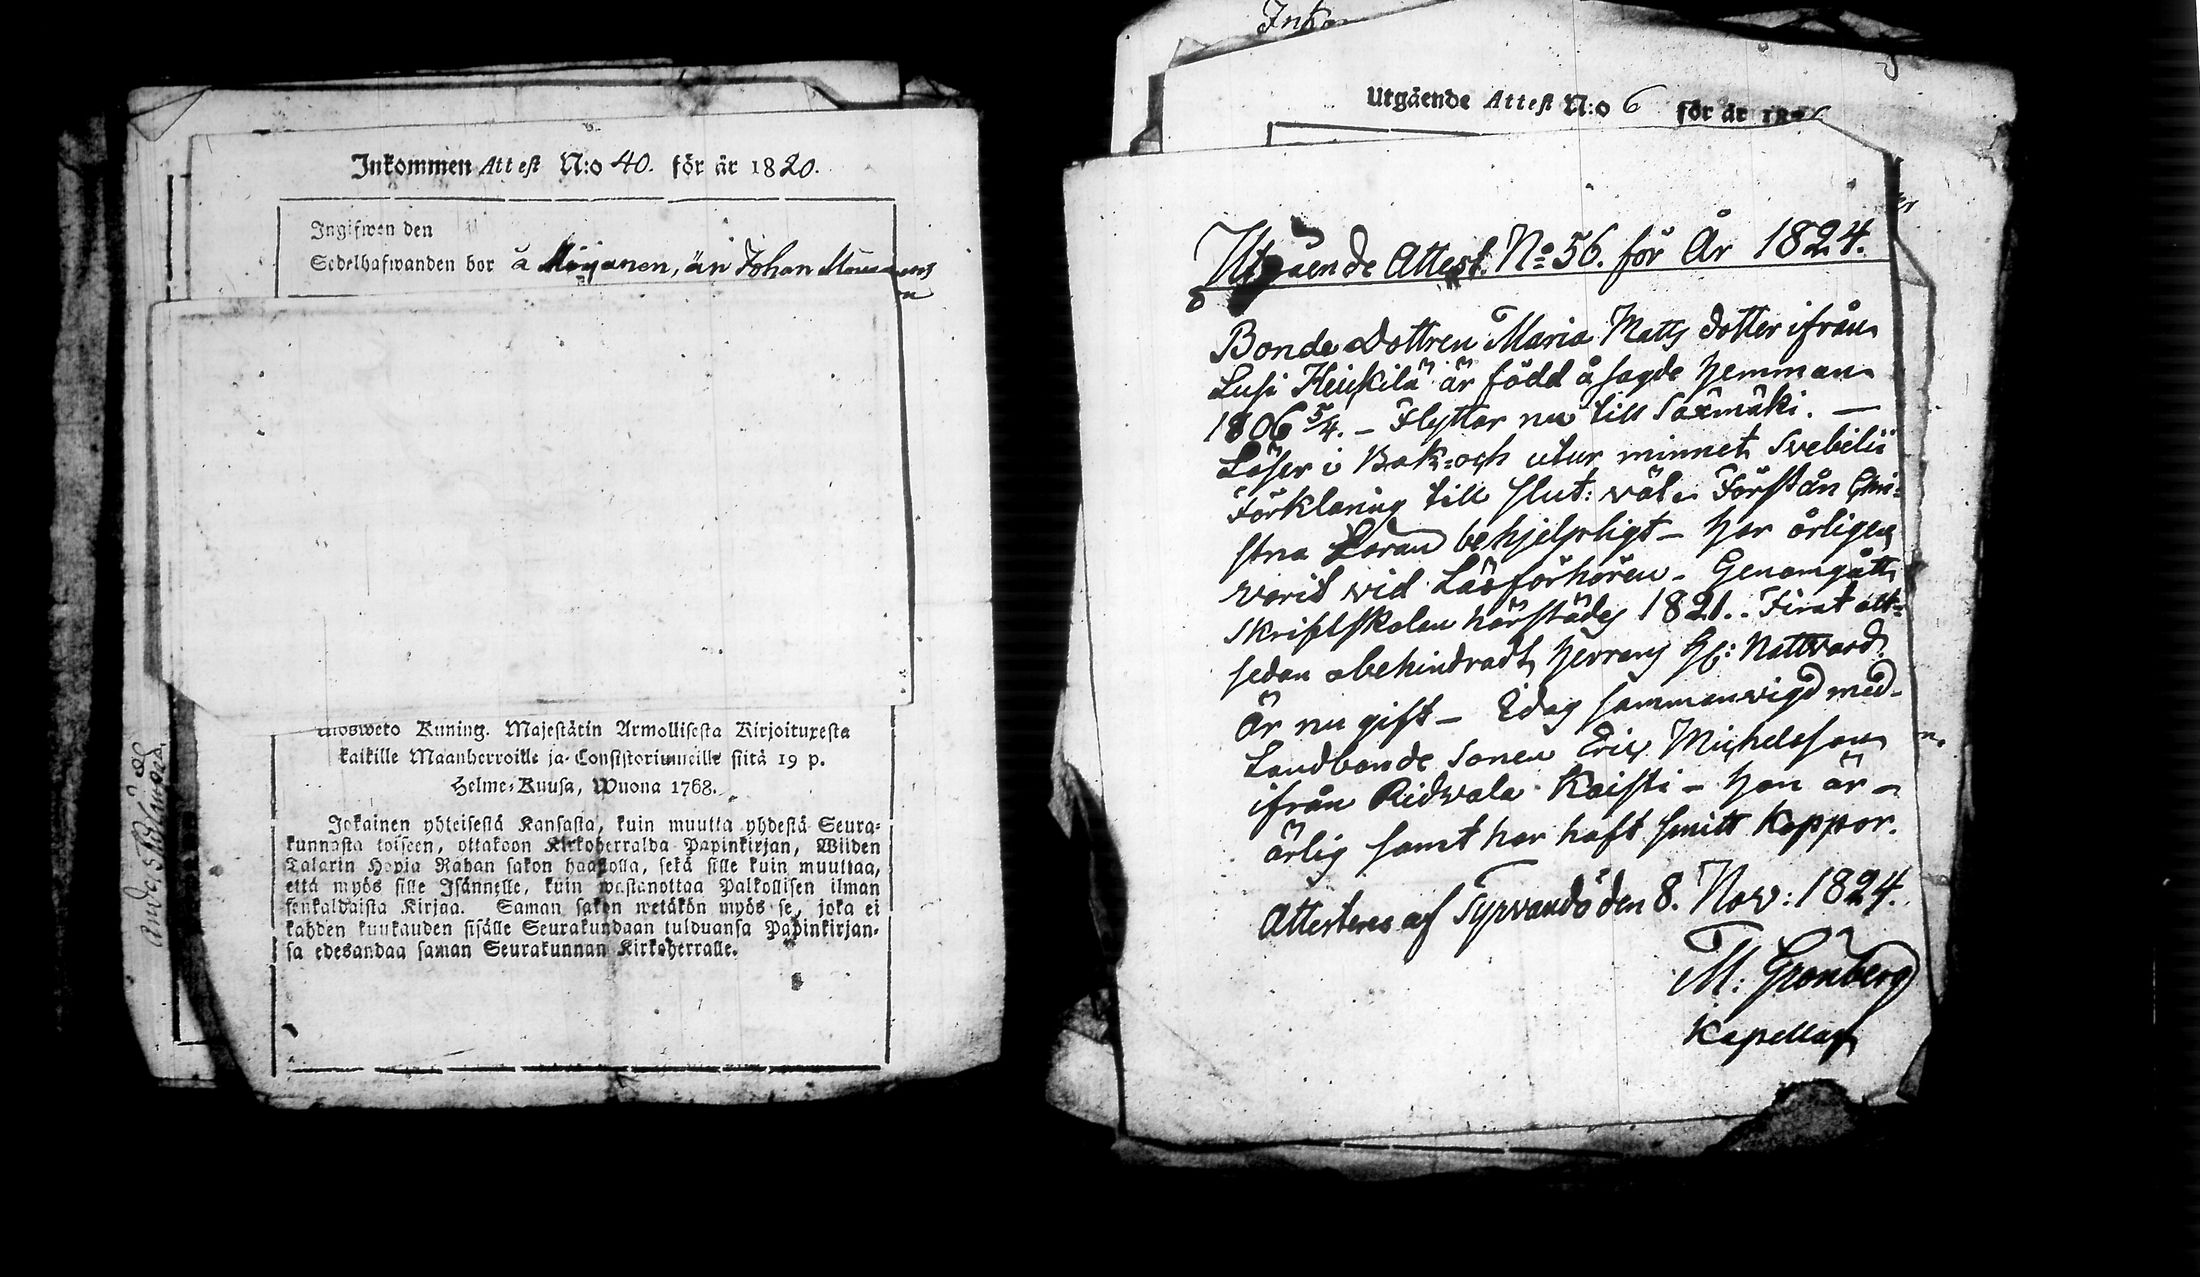 Inkommen Attest N:o 40. för år 1820.
Ingifwen den
Sedelhafwanden bor å
är Johan
Ulosweto Kuning. Majestätin Armollisesta Kirjoituxesta
kaikille Maanherroille ja Consistoriumeille siitä 19 p.
Helme-Kuusa, Wuona 1768.
Jokainen yhteisestä Kansasta, kuin muutta yhdestä Seura-
kunnasta toiseen, ottakoon Kirkoherralda Papinkirjan, Wiiden
Talarin Hopia Rahan sakon haastolla, sekä sille kuin muuttaa,
että myös sille Isännelle, kuin wastanottaa Palkollisen ilman
senkaldaista Kirjaa. Saman sakon wetäkön myös se, joka ei
kahden kuukauden sisälle Seurakundaan tulduansa Papinkirjan-
sa edesandaa saman Seurakunnan Kirkoherralle.
Utgående Attest N:o 6 för år
Utgående Attest No 56. för År 1824.
Bonde Dottren Maria Matts dotter ifrån
Lusi Heickilä är född å sagde hemman
1806 5/4. - Flyttar nu till Saxmäki. —
Läser i Bok- och utur minnet Svebelii
Förklaring till slut: väl. Förstån Chri-
stna Läran behjelpligt - har årligen
varit vid Läsförhören. Genomgått
Skriftskolan härstädes 1821. Firat allt-
sedan obehindradt Herrans Hl: Nattvard.
Är nu gift - Idag sammanvigd med
Landbonde Sonen Eric Michelsson
ifrån Ridvala Kaisti - hon är -
ärlig samt har haft smitt Koppor.
Attesteras af Tyrvändö den 8. Nov: 1824.
M: Grönberg
Kapellan